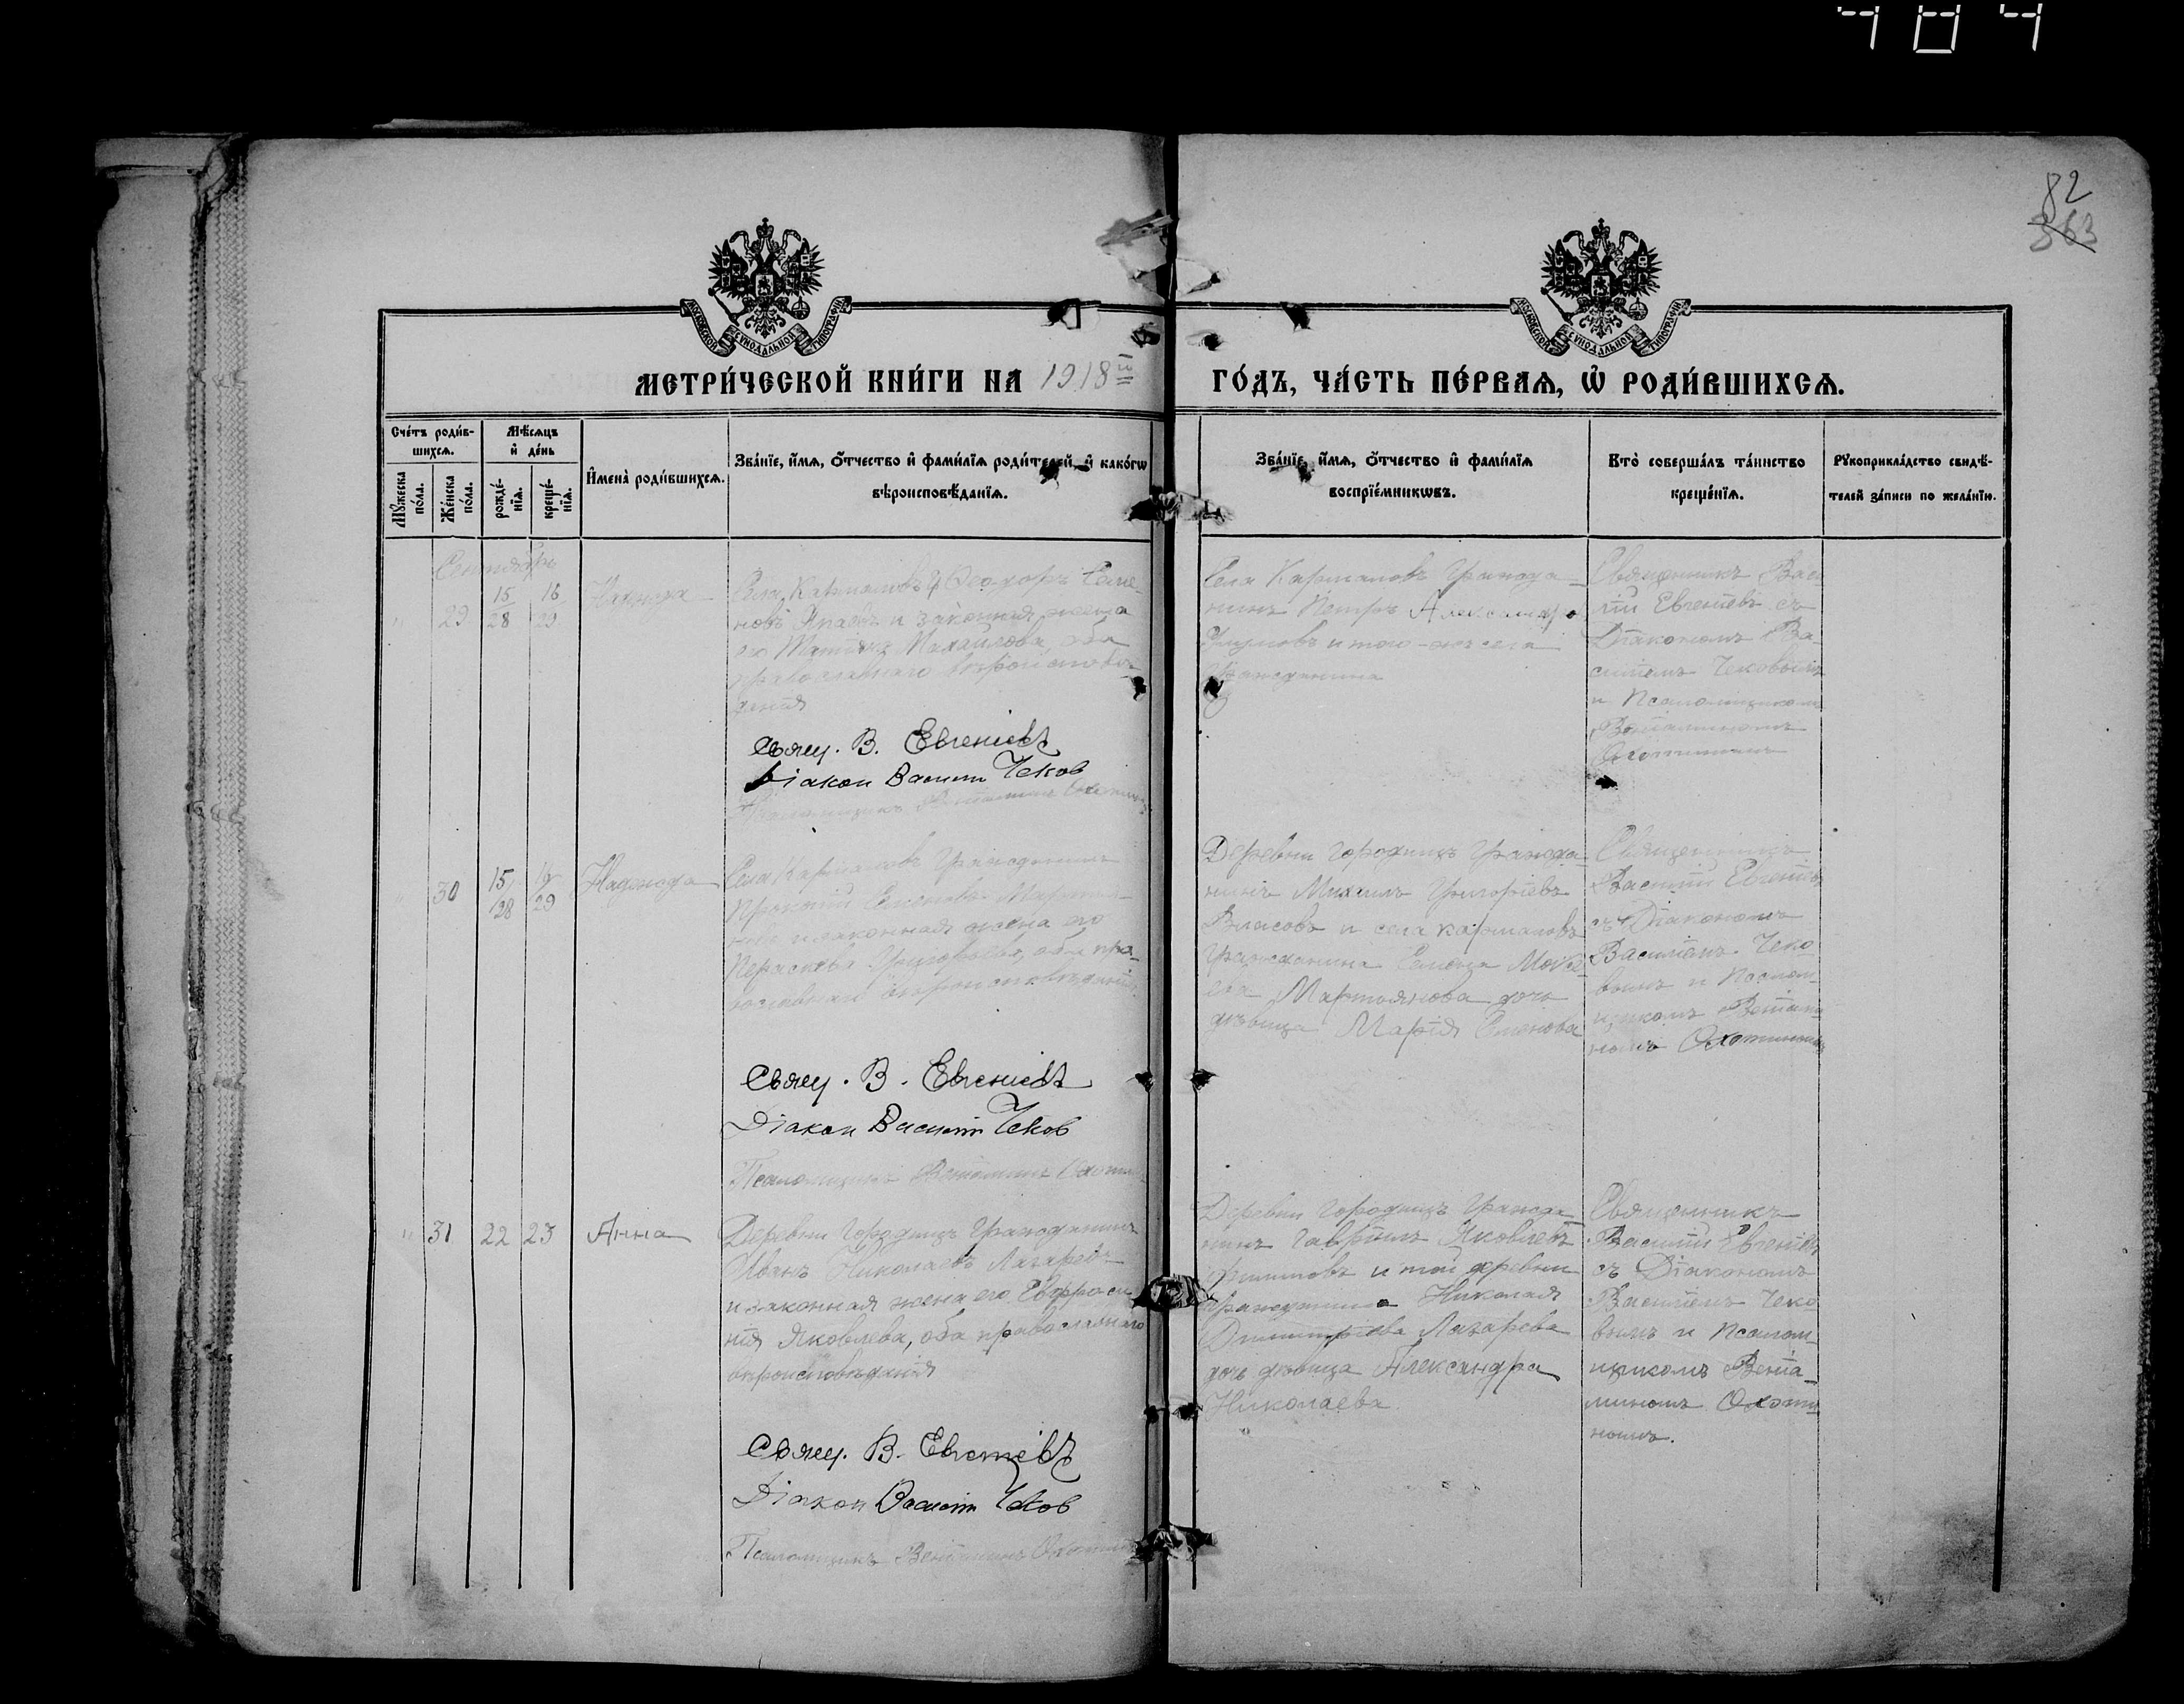 484
82
363
МОСКОВСКОЙ СУНОДАЛЬНОЙ ТИПОГРАФІИ
МОСКОВСКОЙ СУНОДАЛЬНОЙ ТИПОГРАФІИ
МЕТРИ́ЧЕСКОЙ КНИ́ГИ НА 1918 ГО́ДЪ, ЧА́СТЬ ПЕ́РВАѦ, Ѡ҆ РОДИ́ВШИХСѦ.
Сче́тъ роди́в-
шихсѧ.
Мꙋ́жеска по́ла.
Же́нска по́ла.
Мѣ́сѧцъ
и҆ де́нь
рожде́-
нїѧ.
креще́-
нїѧ.
И҆мена̀ роди́вшихсѧ.
Зва́нїе, и҆́мѧ, ѻ҆́тчество и҆ фами́лїѧ роди́телей, и҆ како́гѡ
вѣроисповѣ́данїѧ.
Зва́нїе, и҆́мѧ, ѻ҆́тчество и҆ фами́лїѧ
воспрїе́мникѡвъ.
Кто̀ соверша́лъ та́инство
креще́нїѧ.
Рꙋкоприкла́дство свидѣ́-
телей за́писи по жела́нїю.
Сентябрь
" 29 15/28 16/29 Надежда
Села Кармаловъ Ѳеодоръ Семе-
новъ и законная жена
его Михайлова, оба
православнаго вѣроисповѣ-
данія
Свящ. В. Евгеніевъ
Діакон Василій Чеков
Псаломщикъ Веніаминъ
Села Кармаловъ Гражда-
нинъ Петръ Александров
и того-же села
гражданина
Священникъ Васи
лій Евгеніевъ съ
Діакономъ Ва-
силіемъ Чековымъ
и Псаломщикомъ
Веніаминомъ
Охотинымъ
" 30 15/28 16/29 Надежда
Села Кармаловъ Гражданинъ
Семеновъ
и законная жена его
Параскева Григорьева, оба пра-
вославнаго вѣроисповѣданія.
Свящ. В. Евгеніевъ
Діакон Василій Чеков
Псаломщикъ Веніаминъ Охотин
Деревни Городищъ Гражда
нинъ Михаилъ Григоріевъ
Власовъ и села Кармаловъ
гражданина Семена
Мартьянова дочь
дѣвица Марія Семенова
Священникъ
Василій Евгеніевъ
съ Діакономъ
Василіемъ Чеко
вымъ и Псалом-
щикомъ Веніами
номъ Охотинымъ
" 31 22 23 Анна
Деревни Городищъ Гражданинъ
Иванъ Николаевъ Лазаревъ
и законная жена его Евфроси
нія Яковлева, оба православнаго
вѣроисповѣданія
Свящ. В. Евгеніевъ
Діакон Василій Чеков
Псаломщикъ Веніаминъ Охотин
Деревни Городищъ Гражда
нинъ Гавріилъ Яковлевъ
Филиповъ и той деревни
гражданина Николая
Димитріева Лазарева
дочь дѣвица Александра
Николаева
Священникъ
Василій Евгеніевъ
съ Діакономъ
Василіемъ Чеко
вымъ и Псалом-
щикомъ Веніа-
миномъ Охоти
нымъ.